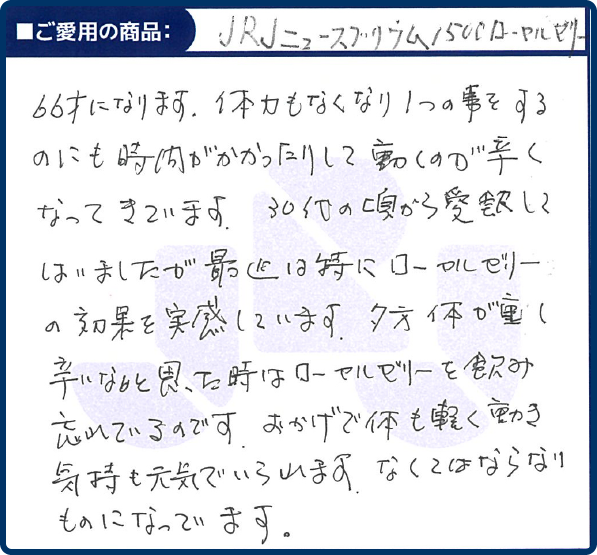 ■ご愛用の商品: JRJニュースブリウム1500ローヤルゼリー
66才になります. 体力もなくなり1つの事をする
のにも時間がかかったりして動くのが辛く
なってきています. 30代の頃から愛飲して
はいましたが最近は特にローヤルゼリー
の効果を実感しています. 夕方体が重く
辛いなぁと思った時はローヤルゼリーを飲み
忘れているのです. おかげで体も軽く動き
気持も元気でいられます. なくてはならない
ものになっています。